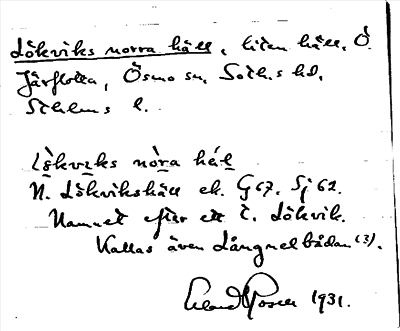 Lökviks norra häll, liten häll, Ö.
Järflotta, Ösmo sn, Soth.s hd,
Sthlms l.
Lö̀kviks nòra hál
N. Lökvikshäll ek. G 67. Sj 62.
Namnet efter ett t. Lökvik.
Kallas även Långnelbådan (3).
Erland Rosell 1931.